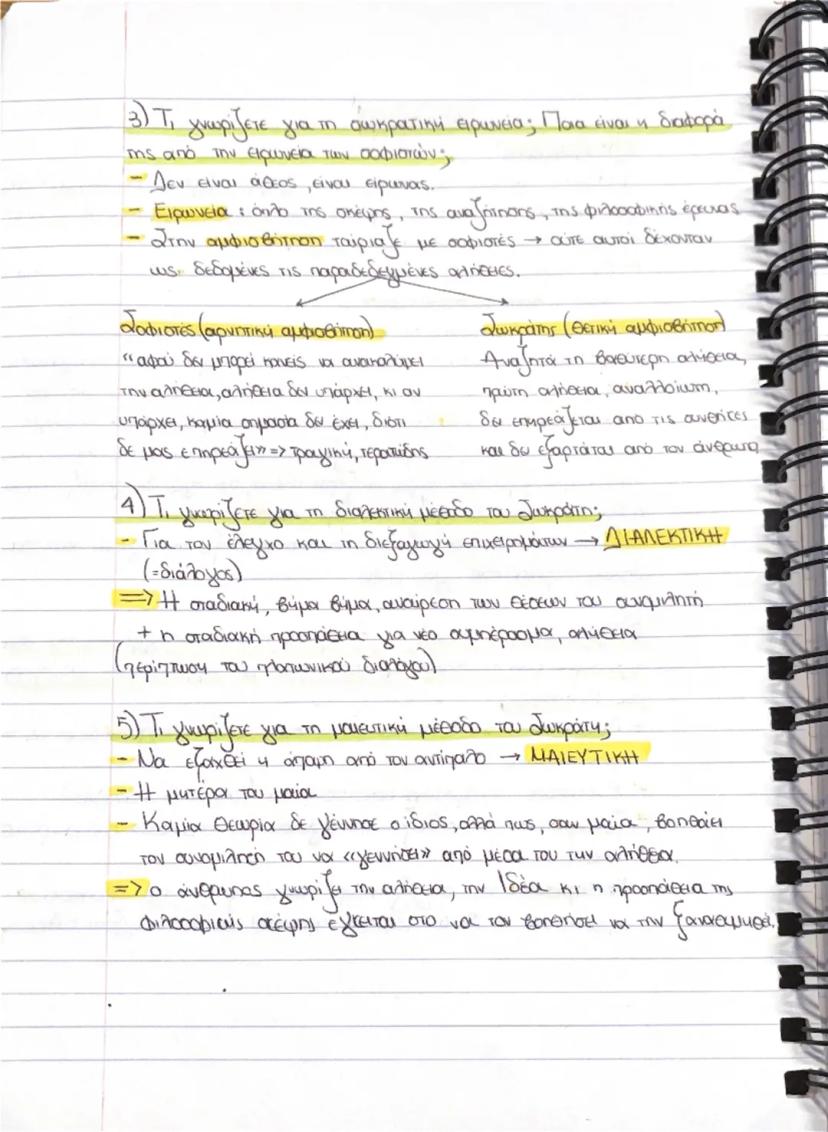 3) Τι γνωρίζετε για τη σωκρατική ειρωνεία; Ποια είναι η διαφορά
της από την ειρωνεία των σοφιστών;
- Δεν είναι άθεος, είναι είρωνας.
- Ειρωνεία: όπλο της σκέψης, της αναζήτησης, της φιλοσοφικής έρευνας
- Στην αμφισβήτηση ταίριαζε με σοφιστές → ούτε αυτοί δέχονταν
ως δεδομένες τις παραδεδεγμένες αλήθειες.
Σοφιστές (αρνητική αμφισβήτηση)
«αφού δεν μπορεί κανείς να ανακαλύψει
την αλήθεια, αλήθεια δεν υπάρχει, κι αν
υπάρχει, καμία σημασία δεν έχει, διότι
δε μας επηρεάζει» => τραγική, τερατώδης
Σωκράτης (θετική αμφισβήτηση)
Αναζητά τη βαθύτερη αλήθεια,
πρώτη αλήθεια, αναλλοίωτη,
δεν επηρεάζεται από τις συνθήκες
και δεν εξαρτάται από τον άνθρωπο
4) Τι γνωρίζετε για τη διαλεκτική μέθοδο του Σωκράτη;
- Για τον έλεγχο και τη διεξαγωγή επιχειρημάτων → ΔΙΑΛΕΚΤΙΚΗ
(=διάλογος)
=> Η σταδιακή, βήμα βήμα, αναίρεση των θέσεων του συνομιλητή
+ η σταδιακή προσπάθεια για νέο συμπέρασμα, αλήθεια
(περίπτωση του πλατωνικού διαλόγου)
5) Τι γνωρίζετε για τη μαιευτική μέθοδο του Σωκράτη;
- Να εξαχθεί η άποψη από τον αντίπαλο → ΜΑΙΕΥΤΙΚΗ
- Η μητέρα του μαία
- Καμία θεωρία δε γέννησε ο ίδιος, αλλά πως, σαν μαία, βοηθάει
τον συνομιλητή του να «γεννήσει» από μέσα του την αλήθεια.
=> ο άνθρωπος γνωρίζει την αλήθεια, την Ιδέα κι η προσπάθεια της
φιλοσοφικής σκέψης έγκειται στο να τον βοηθήσει να την ξαναθυμηθεί.